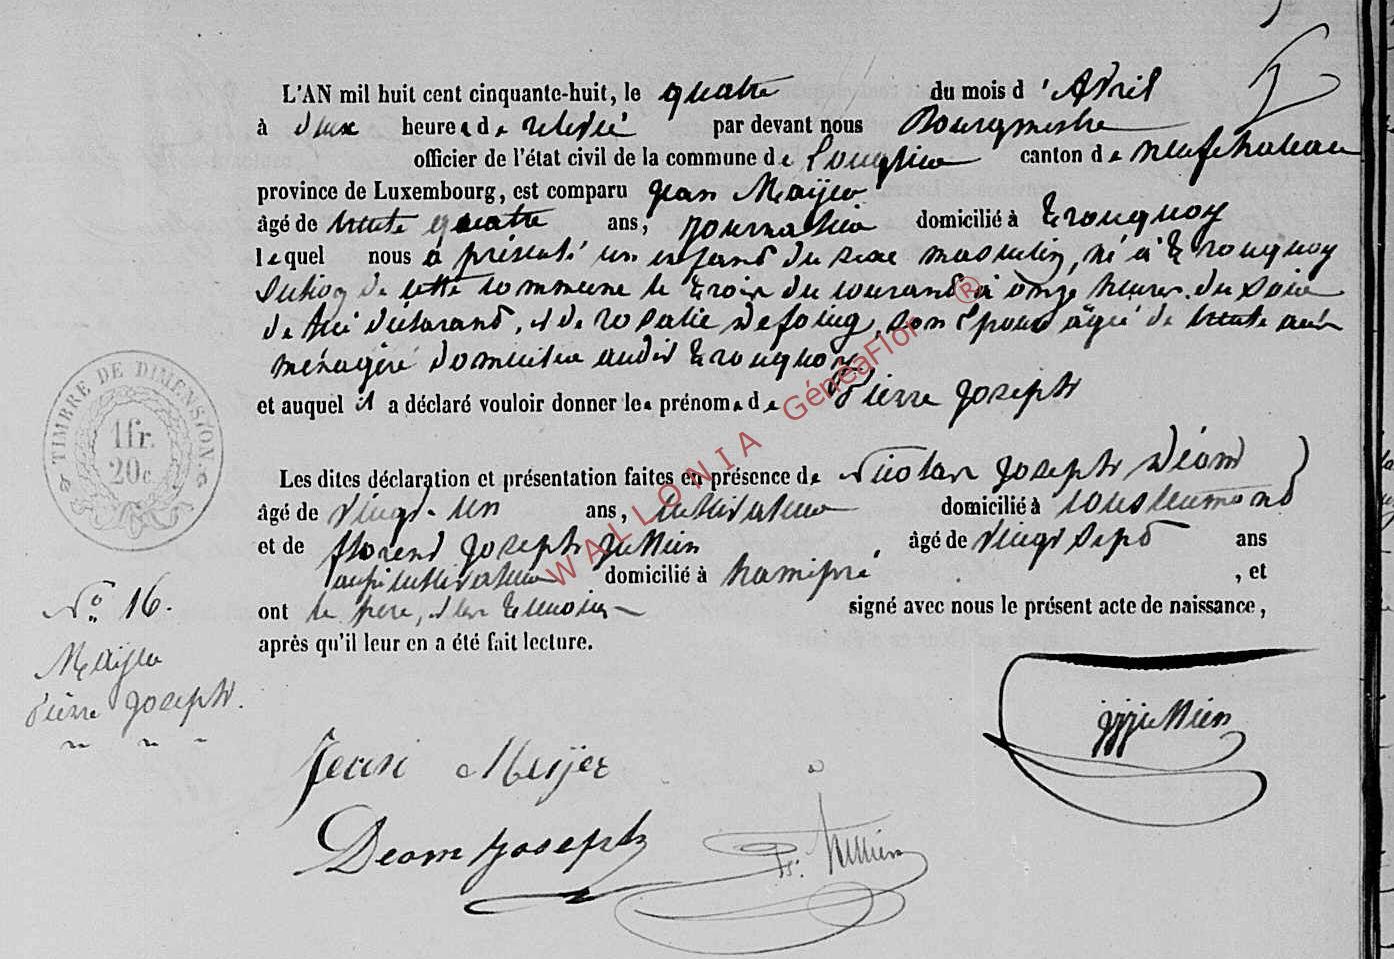 L'AN mil huit cent cinquante-huit, le quatre du mois d'Avril
à deux heures de relevée par devant nous Bourgmestre
officier de l'état civil de la commune de Longlier canton de neufchateau
province de Luxembourg, est comparu Jean Maijer
âgé de trente quatre ans, journalier domicilié à Tronquoy
lequel nous a présenté un enfant du sexe masculin, né à Tronquoy
Section de cette commune le trois du courand à onze heures du soir
de lui déclarand, et de rosalie Defoing, son épouse âgée de trente ans
ménagère domiciliée audit Tronquoy
et auquel il a déclaré vouloir donner les prénoms de Pierre Joseph
Les dites déclaration et présentation faites en présence de Nicolas Joseph Déom
âgé de vingt-un ans, cultivateur domicilié à
et de florend Joseph Jullien âgé de vingt sept ans
aussi cultivateur domicilié à hamipré , et
ont le père, et les témoins signé avec nous le présent acte de naissance,
après qu'il leur en a été fait lecture.
TIMBRE DE DIMENSION
1fr.
20c
No. 16.
Maijer
Pierre Joseph.
Jean Meijer
Deom Joseph
Jullien
WALLONIA GénéaFlor ®